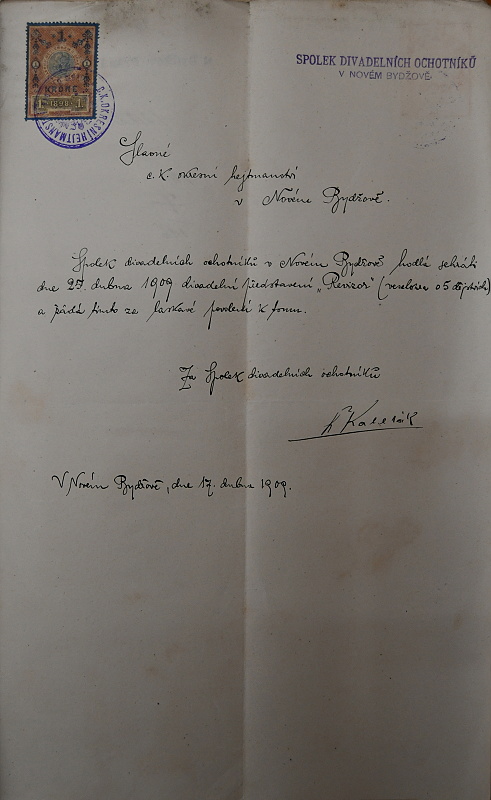 1
KRONE
1 1898 1
C.K. OKRESNÍ HEJTMANST
SPOLEK DIVADELNÍCH OCHOTNÍKŮ
V NOVÉM BYDŽOVĚ
Slavné
c. k. okresní hejtmanství
v Novém Bydžově.
Spolek divadelních ochotníků v Novém Bydžově hodlá sehráti
dne 25. dubna 1909 divadelní představení „Revizor" (veselohra o 5 dějstvích)
a žádá tímto za laskavé povolení k tomu.
Za Spolek divadelních ochotníků
V Novém Bydžově, dne 17. dubna 1909.